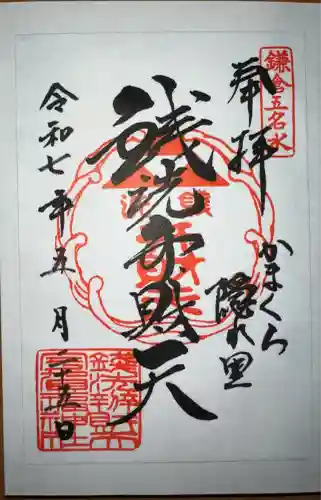 鎌倉五名水
奉拝
かまくら
隠れ里
銭洗弁財天
令和七年五月二十五日